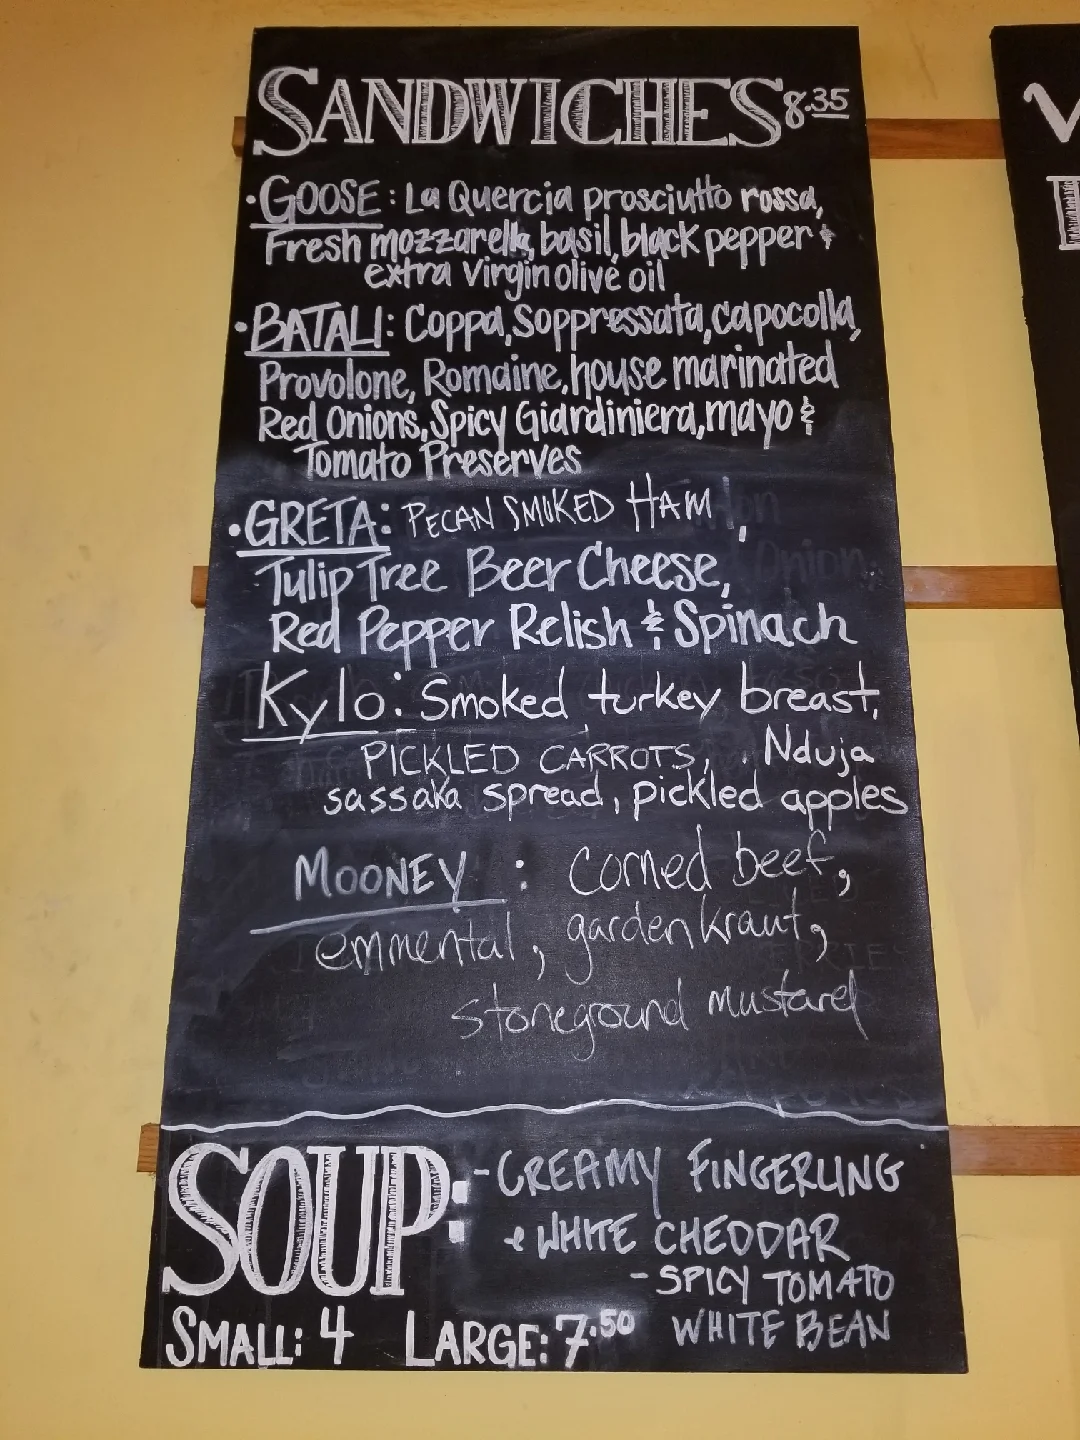 SANDWICHES 8.35
• GOOSE: La Quercia prosciutto rossa,
Fresh mozzarella, basil, black pepper &
extra virgin olive oil
• BATALI: Coppa, Soppressata, capocolla,
Provolone, Romaine, house marinated
Red Onions, Spicy Giardiniera, mayo &
Tomato Preserves
• GRETA: PECAN SMOKED HAM,
Tulip Tree Beer Cheese,
Red Pepper Relish & Spinach
Kylo: Smoked turkey breast,
PICKLED CARROTS, Nduja
sassaka spread, pickled apples
MOONEY: corned beef,
emmental, garden kraut,
stoneground mustard
SOUP: - CREAMY FINGERLING
& WHITE CHEDDAR
- SPICY TOMATO
WHITE BEAN
SMALL: 4 LARGE: 7.50